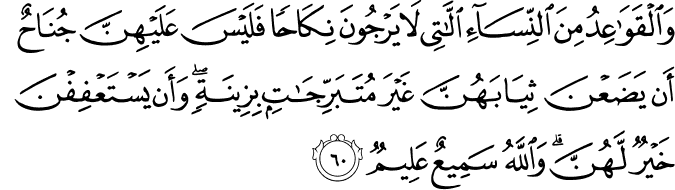 وَٱلْقَوَٰعِدُ مِنَ ٱلنِّسَآءِ ٱلَّٰتِى لَا يَرْجُونَ نِكَاحًا فَلَيْسَ عَلَيْهِنَّ جُنَاحٌ
أَن يَضَعْنَ ثِيَابَهُنَّ غَيْرَ مُتَبَرِّجَٰتٍۭ بِزِينَةٍۖ وَأَن يَسْتَعْفِفْنَ
خَيْرٌ لَّهُنَّۗ وَٱللَّهُ سَمِيعٌ عَلِيمٌ ٦٠